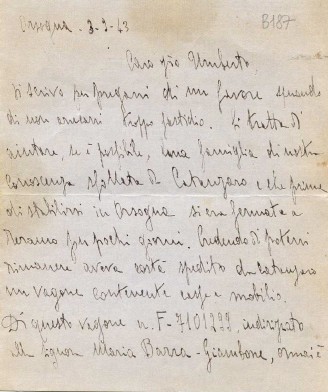 Orsogna 3-9-43
B187
Caro zio Umberto
Ti scrivo per pregarti di un favore sperando
di non crearti troppo fastidio. Si tratta di
aiutare, se è possibile, una famiglia di nostra
conoscenza sfollata da Catanzaro e che prima
di stabilirsi in Orsogna si era fermata a
Teramo per pochi giorni. Credendo di potersi
rimanere aveva costà spedito da Catanzaro
un vagone contenente casse e mobilio.
Di questo vagone n. F-7101222, indirizzato
alla signora Maria Barra-Giambone, ormai è